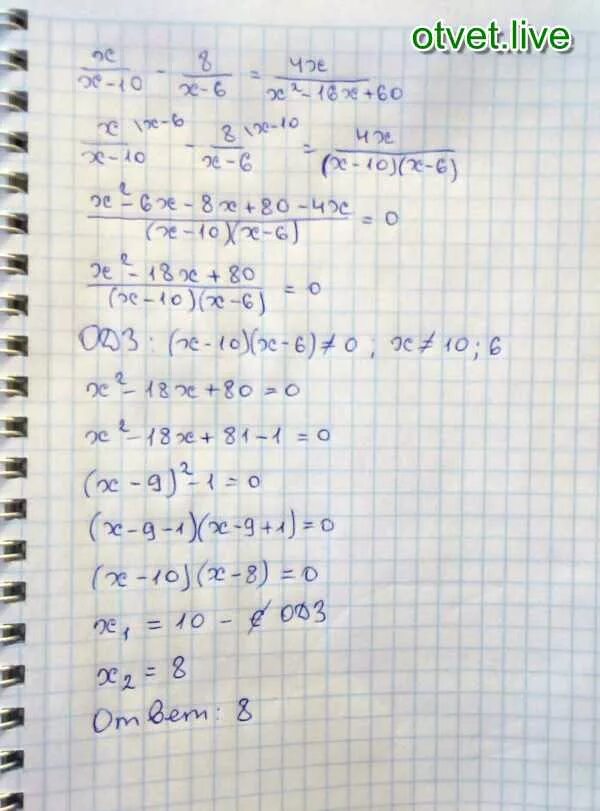 otvet.live
x/(x-10) - 8/(x-6) = 4x/(x²-16x+60)
x\x-6/(x-10) - 8\x-10/(x-6) = 4x/((x-10)(x-6))
(x²-6x-8x+80-4x)/((x-10)(x-6)) = 0
(x²-18x+80)/((x-10)(x-6)) = 0
ОДЗ: (x-10)(x-6)≠0; x≠10;6
x²-18x+80=0
x²-18x+81-1=0
(x-9)²-1=0
(x-9-1)(x-9+1)=0
(x-10)(x-8)=0
x₁=10 - ∉ ОДЗ
x₂=8
Ответ: 8